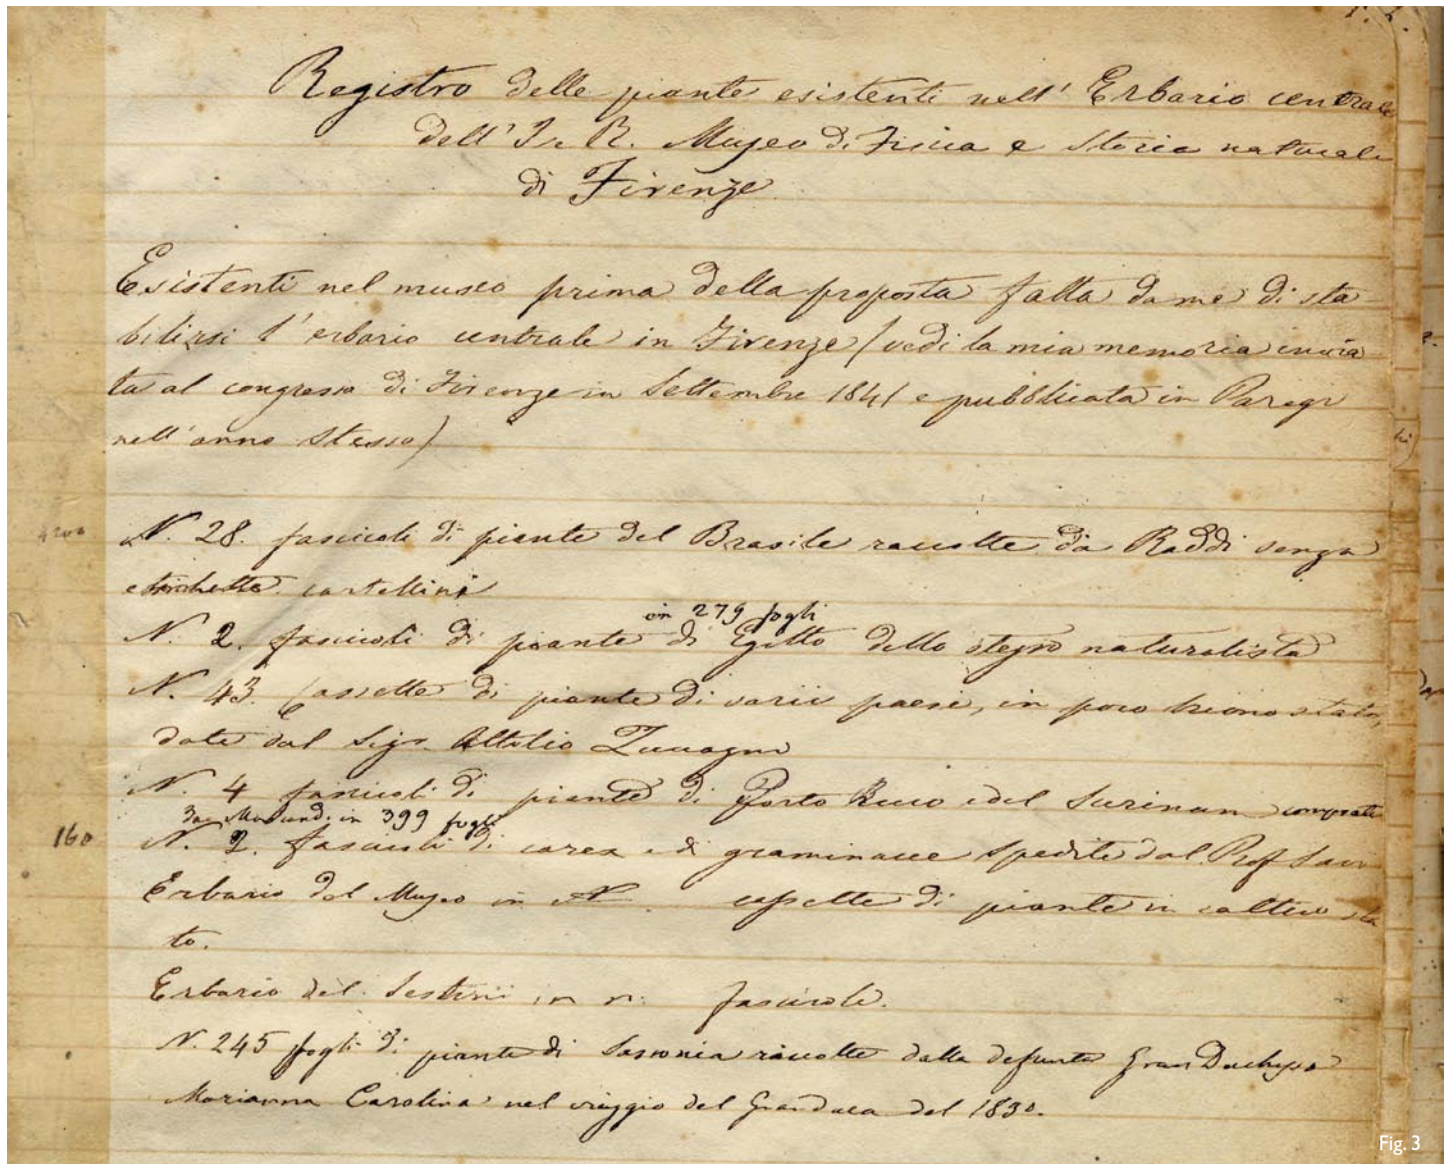 Registro delle piante esistenti nell' Erbario centrale
dell' I. e R. Museo di Fisica e Storia naturale
di Firenze
Esistenti nel museo prima della proposta fatta da me di sta
bilirsi l' erbario centrale in Firenze (vedi la mia memoria invia
ta al congresso di Firenze in Settembre 1841 e pubblicata in
nell' anno stesso)
N. 28. fascicoli di piante del Brasile raccolte da Raddi senza
cartellini
in 279 fogli
N. 2. fascicoli di piante di Egitto dello stesso naturalista
N. 43. Cassette di piante di varii paesi, in poco buono stato,
date dal Sigr. Attilio Zuccagni
N. 4 fascicoli di piante di Porto Ricco e del Surinam comprati
da in 399 fogli
160
N. 2. fascicoli di carex e di graminacee spedite dal Prof Savi
Erbario del Museo in N. cassette di piante in cattivo sta
to.
Erbario del Sestini in n. fascicoli.
N. 245 fogli di piante di Sassonia raccolte dalla defunta Gran Duchessa
Marianna Carolina nel viaggio del Granduca del 1830.
Fig. 3